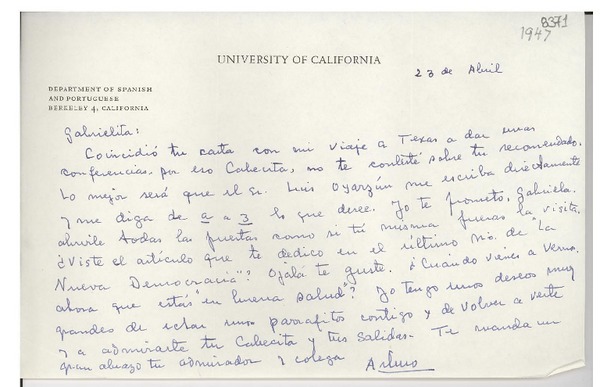 8371
1947
UNIVERSITY OF CALIFORNIA
23 de Abril
DEPARTMENT OF SPANISH
AND PORTUGUESE
BERKELEY 4, CALIFORNIA
Gabrielita:
Coincidió tu carta con mi viaje a Texas a dar unas
conferencias, por eso Cabecita, no te contesté sobre tu recomendado.
Lo mejor será que el Sr. Luis Oyarzún me escriba directamente
y me diga de a a z lo que desee. Yo te prometo, Gabriela,
abrirle todas las puertas como si tú misma fueras la visita.
¿Viste el artículo que te dedico en el último No. de "La
Nueva Democracia"? Ojalá te guste. ¿Cuándo vienes a vernos
ahora que estás "en buena salud"? Yo tengo unos deseos muy
grandes de echar unos parrafitos contigo y de volver a verte
y a admirarte tu Cabecita y tus salidas. Te manda un
gran abrazo tu admirador y colega Arturo